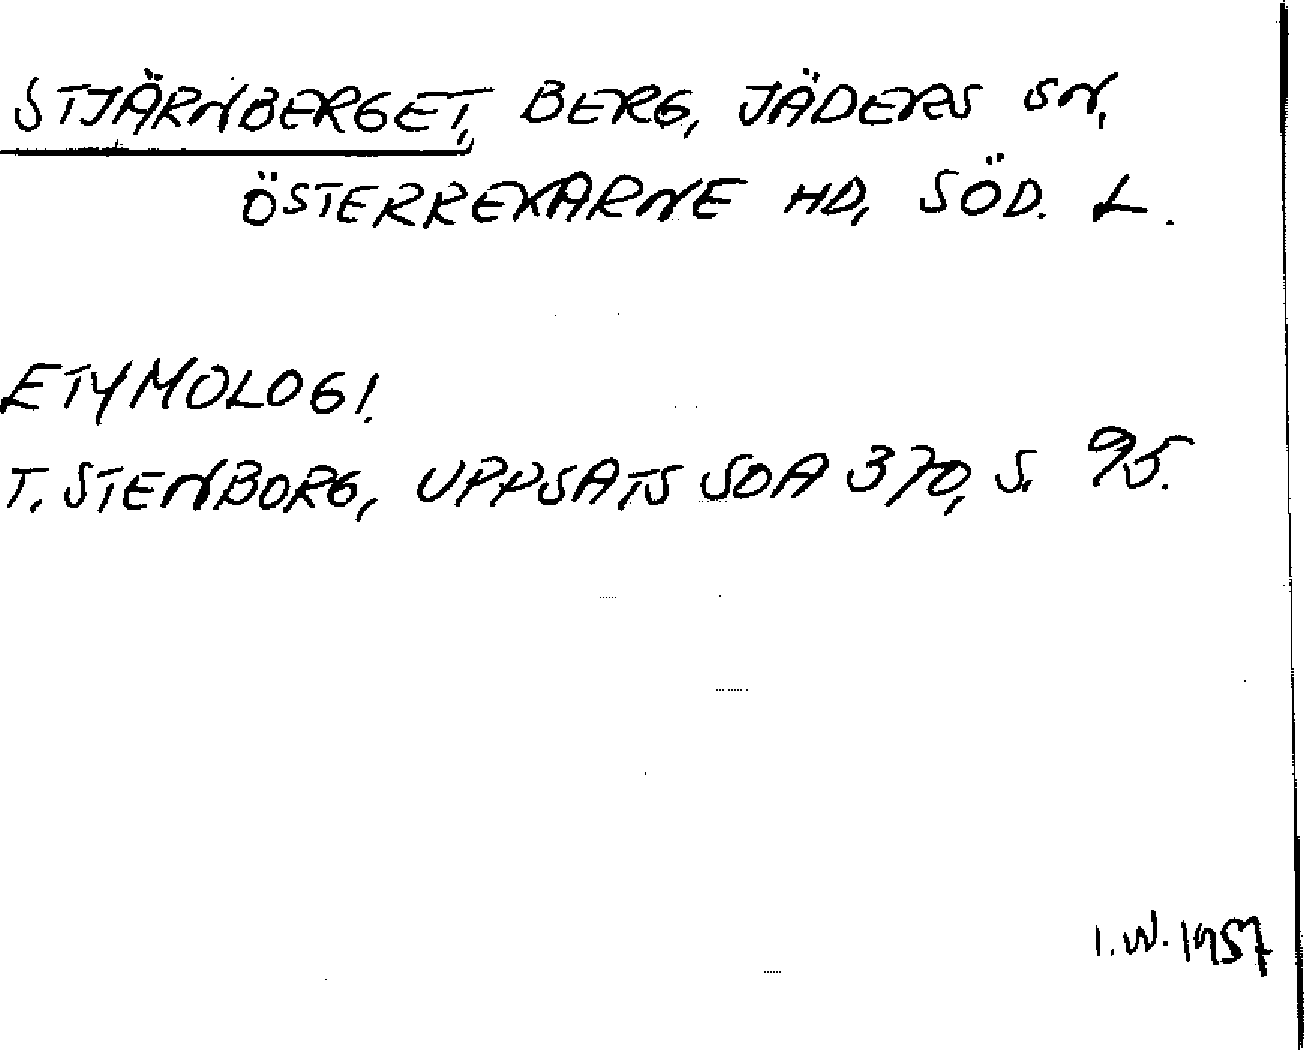 STJÄRNBERGET, BERG, JÄDERS SN,
ÖSTERREKARNE HD, SÖD. L.
ETYMOLOGI.
T. STENBORG, UPPSATS SOA 370, S. 95.
I.W. 1957